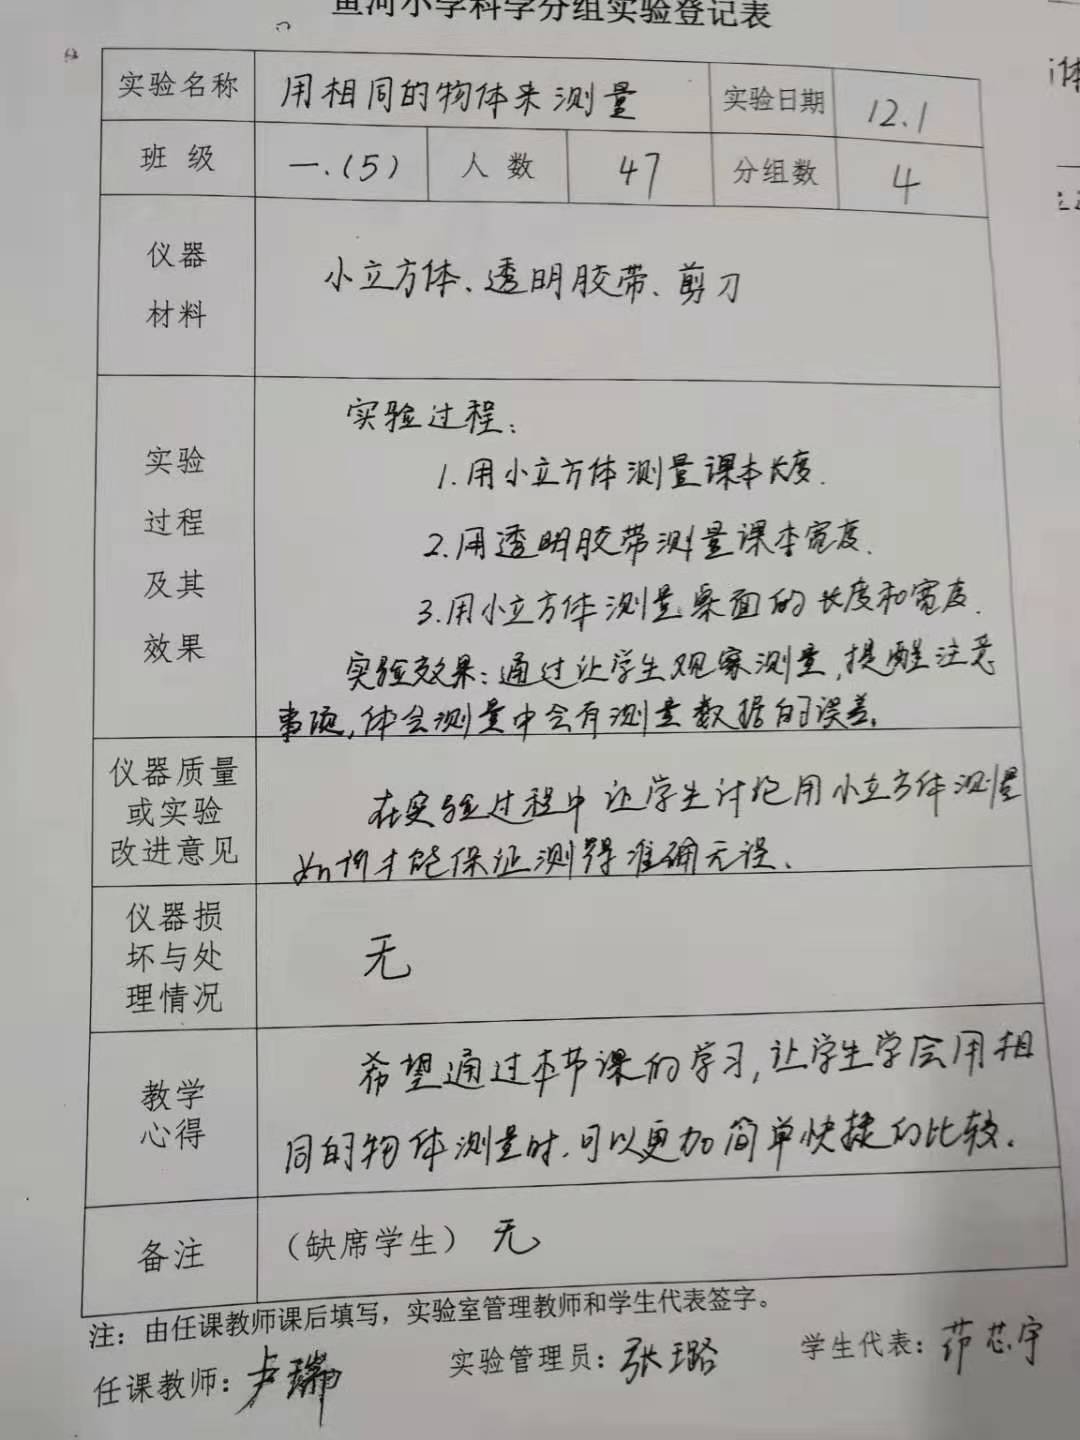 鱼河小学科学分组实验登记表
实验名称 用相同的物体来测量 实验日期 12.1
班 级 一.(5) 人 数 47 分组数 4
仪器
材料
小立方体、透明胶带、剪刀
实验
过程
及其
效果
实验过程:
1.用小立方体测量课本长度.
2.用透明胶带测量课本宽度.
3.用小立方体测量桌面的长度和宽度.
实验效果:通过让学生观察测量,提醒注意
事项,体会测量中会有测量数据的误差.
仪器质量
或实验
改进意见
在实验过程中让学生讨论用小立方体测量
如何才能保证测得准确无误.
仪器损
坏与处
理情况
无
教学
心得
希望通过本节课的学习,让学生学会用相
同的物体测量时.可以更加简单快捷的比较.
备注 (缺席学生) 无
注:由任课教师课后填写,实验室管理教师和学生代表签字。
任课教师:卢瑞 实验管理员:张璐 学生代表:芯宇